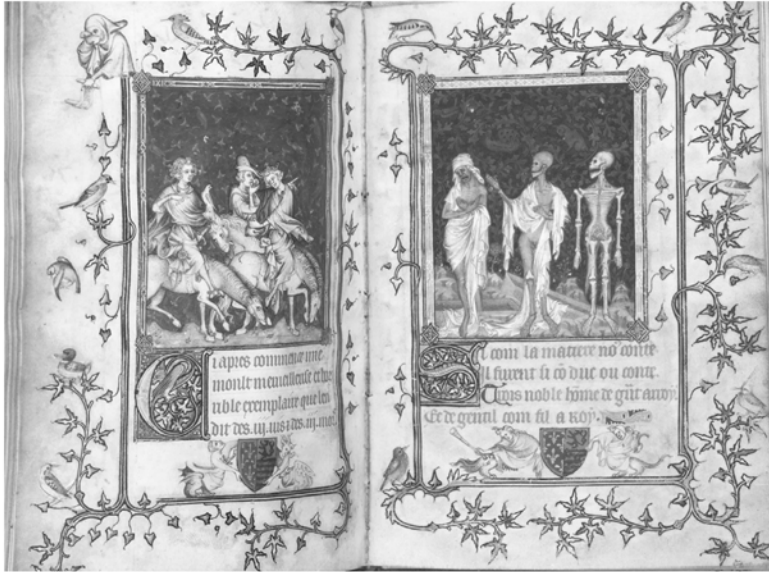 Ci apres commence une
moult merueilleuse et hor
rible exemplaire que len
dit des .iii. uis ⁊ des .iii. mors
Si com la matiere nõ conte
Il furent si cõ duc ou conte
Trois noble hõme de grãt arroy
Et de gentil com fil a roy